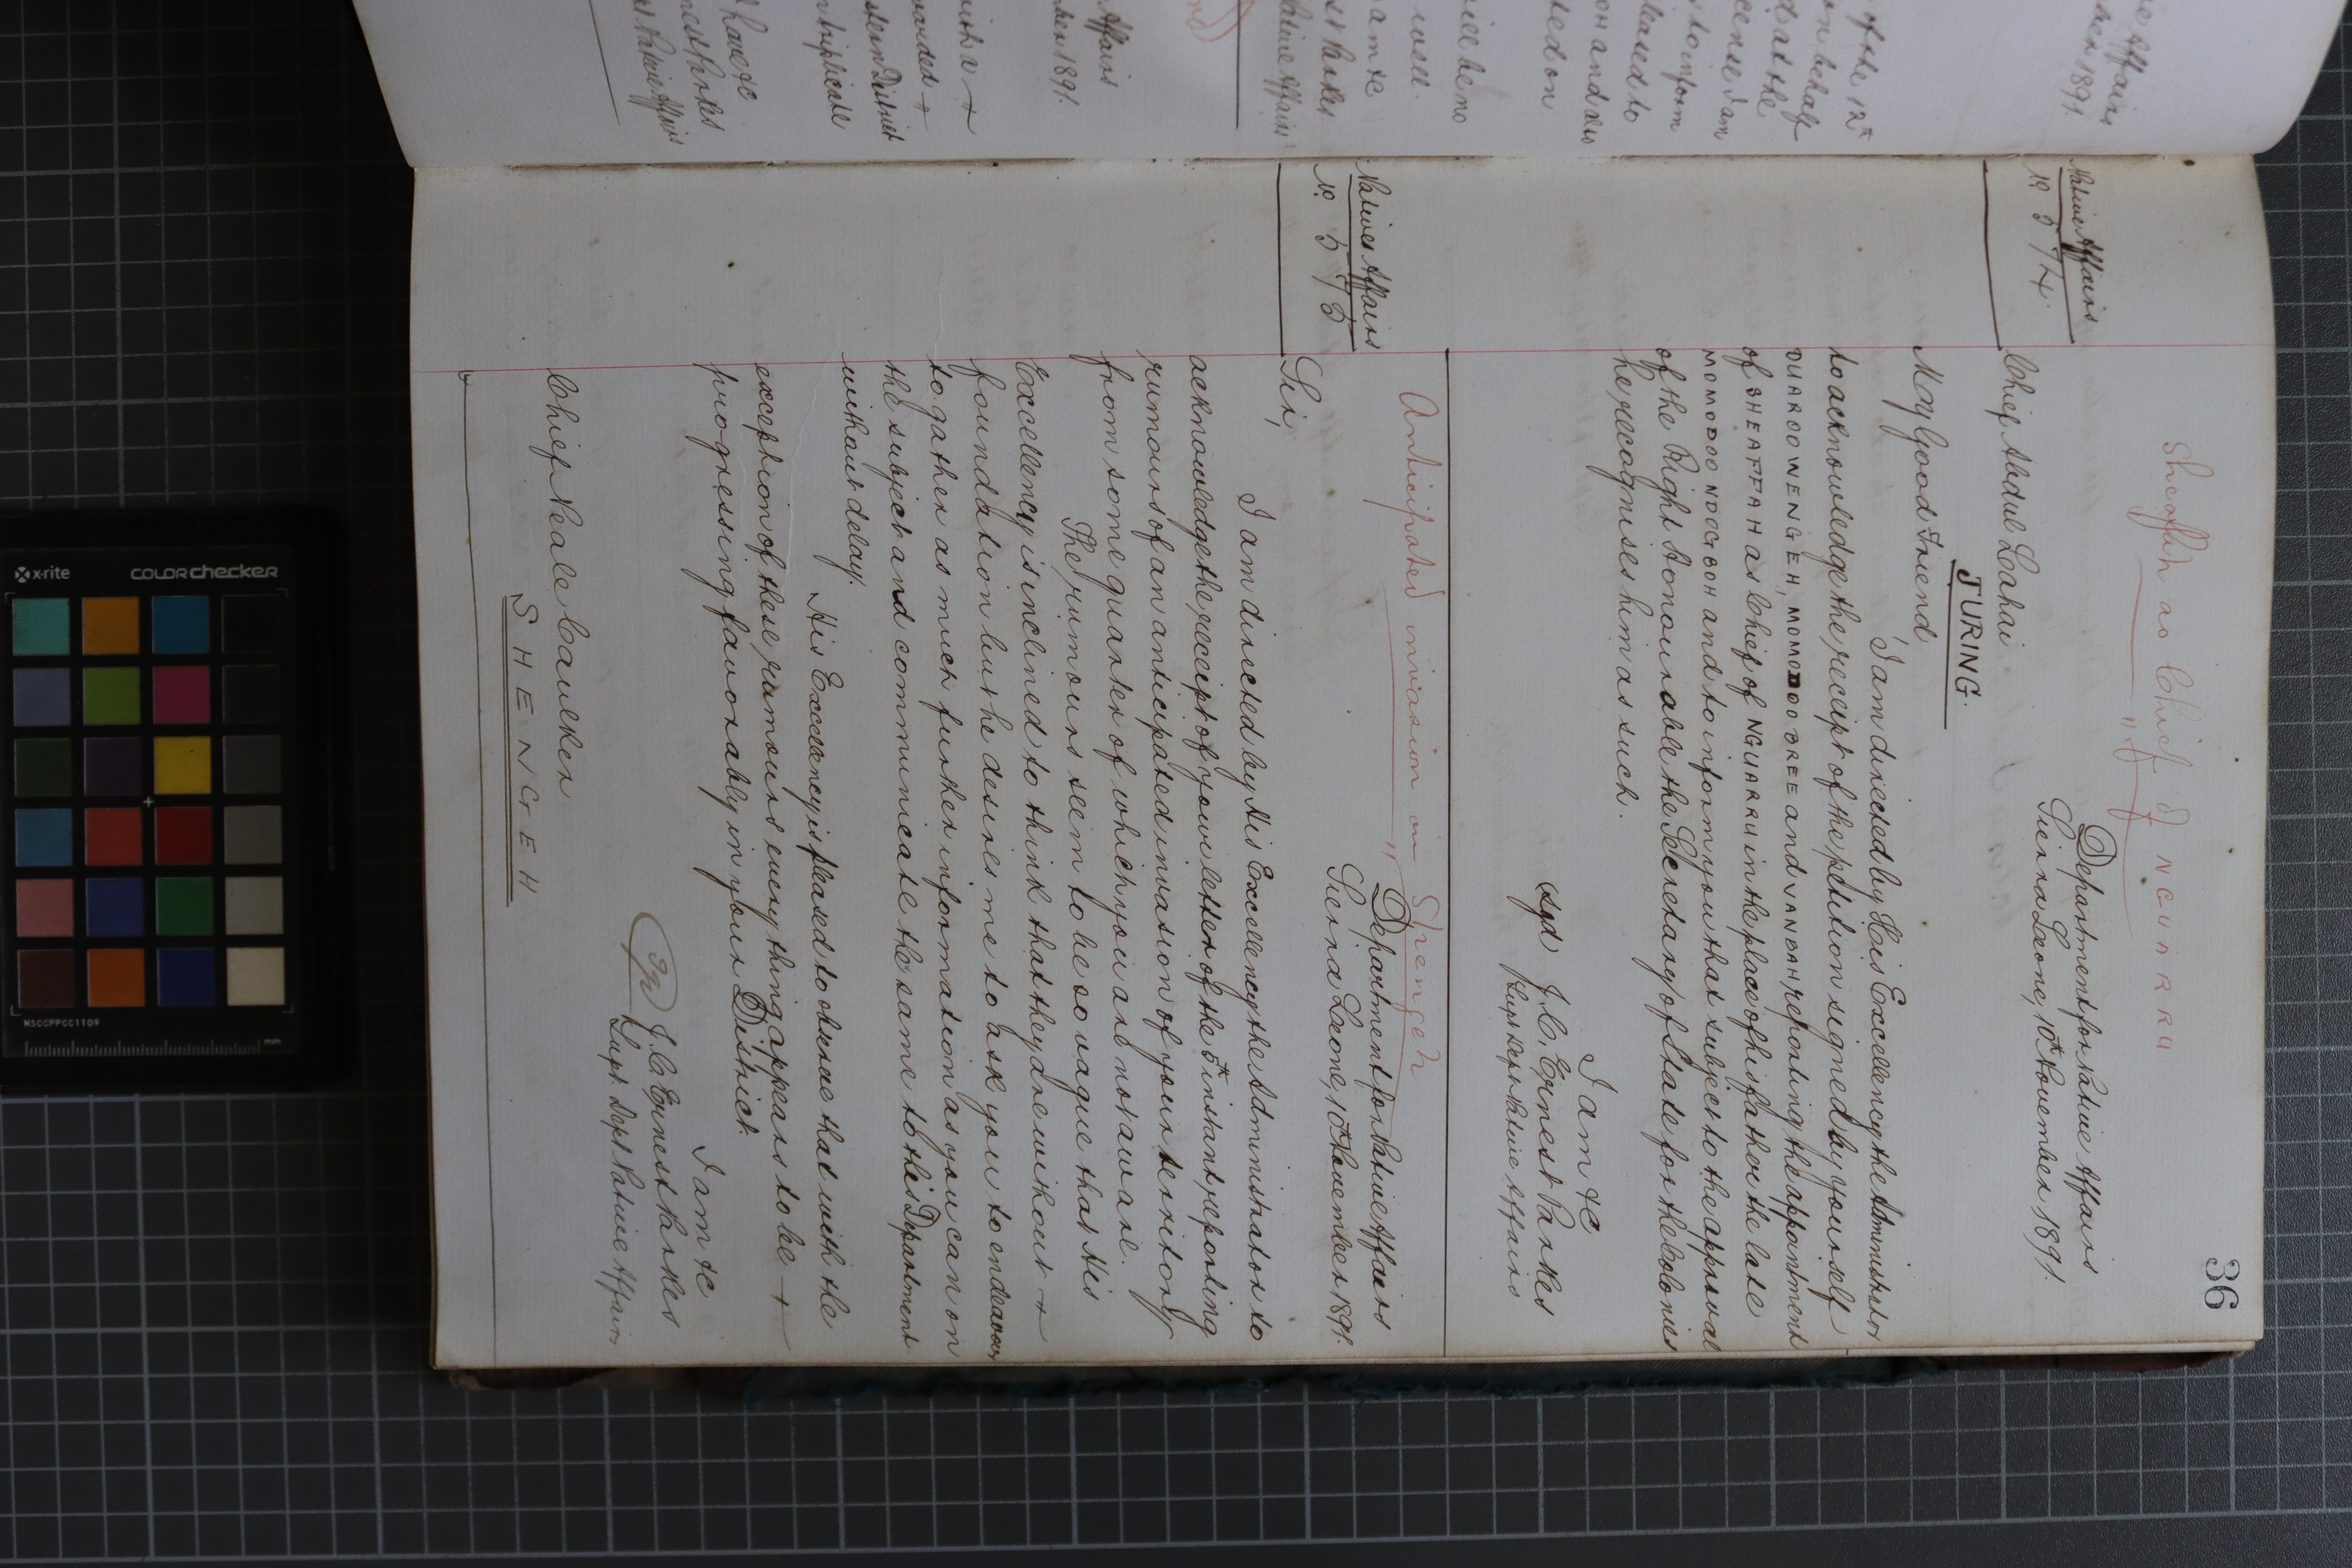 36
Sheaffah as Chief of NGUARRU
Native Affairs
No 574.
Department for Native Affairs
Sierra Leone, 10th November 1891.
Chief Abdul Lahai
JURING.
My Good Friend,
I am directed by His Excellency the Administrator
to acknowledge the receipt of the petition signed by yourself
DUAROO WENGEH, MOMODOO DREE and VANDAH reporting the appointment
of SHEAFFAH as Chief of NGUARRU in the place of his father the late
MOMODOO NDOGBOH and to inform you that subject to the approval
of the Right Honourable the Secretary of State for the Colonies
he recognises him as such.
I am &c
(sgd J. C. Ernest Parkes
Supt Dept Native Affairs
Anticipated invasion on Shengeh
Natives Affairs
No 575
Department for Native Affairs
Sierra Leone, 10th November 1891.
Sir,
I am directed by His Excellency the Administrator to
acknowledge the receipt of your letter of the 5th instant reporting
rumours of an anticipated invasion of your territory
from some quarter of which you are not aware.
The rumours seem to be so vague that His
Excellency is inclined to think that they are without
foundation but he desires me to ask you to endeavour
to gather as much further information as you can on
the subject and communicate the same to this Department
without delay.
His Excellency is pleased to observe that with the
exception of these rumours every thing appears to be
progressing favourably in your District.
I am &c
Sgd J. C. Ernest Parkes
Supt. Dept Native Affairs
Chief Neale Caulker
SHENGEH
ive Affairs
ber 1891.
of the 12th
on behalf
d at the
cense I am
to inform
leased to
OH and du
sed on
will be no
well.
am &c
st Parkes
Native Affairs
Affairs
ber 1891.
with a
warded
stern District
n triplicate
I have &c
nest Parkes
t Native Affairs
x-rite
COLORchecker
MSCCPPCC1109
mm